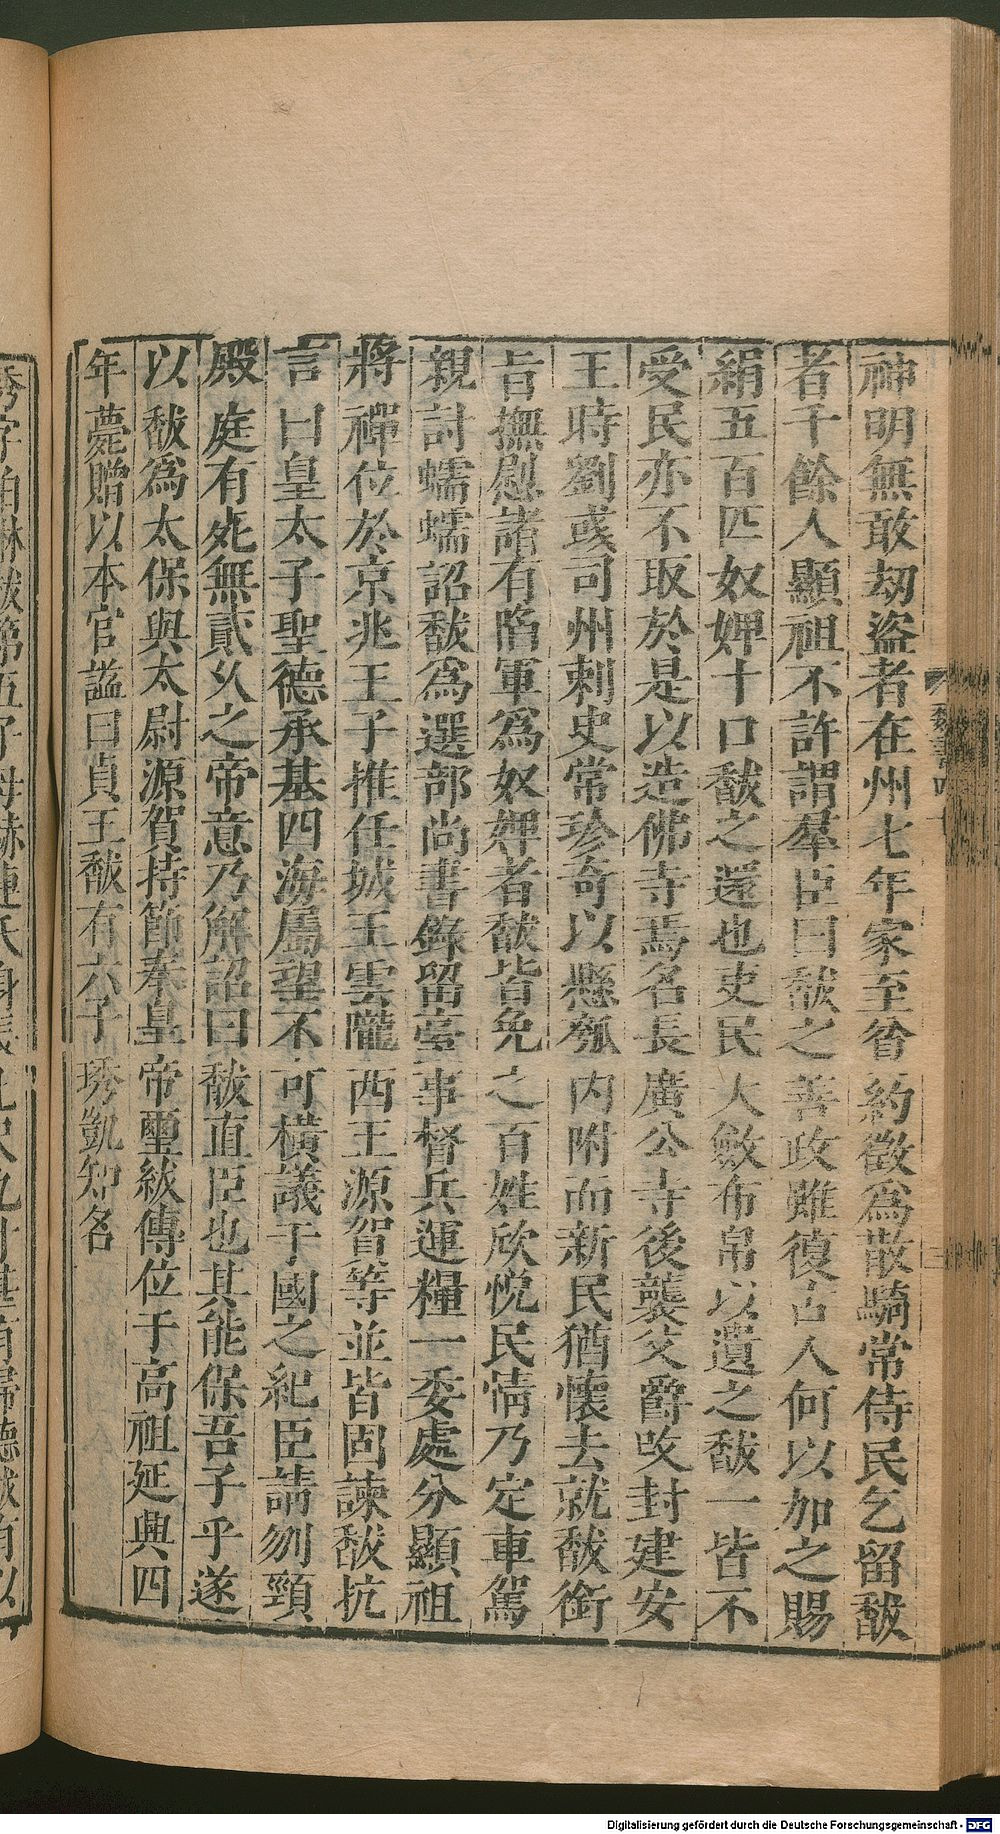 神明無敢劫盜者在州七年家至貧約徵為散騎常侍民乞留馛
者千餘人顯祖不許謂羣臣曰馛之善政雖復古人何以加之賜
絹五百匹奴婢十口馛之還也吏民大斂布帛以遺之馛一皆不
受民亦不取於是以造佛寺焉名長廣公寺後襲父爵改封建安
王時劉彧司州刺史常珍奇以懸瓠內附而新民猶懷去就馛銜
旨撫慰諸有陷軍為奴婢者馛皆免之百姓欣悅民情乃定車駕
親討蠕蠕詔馛為選部尚書錄留臺事督兵運糧一委處分顯祖
將禪位於京兆王子推任城王雲隴西王源賀等並皆固諫馛抗
言曰皇太子聖德承基四海屬望不可橫議干國之紀臣請刎頸
殿庭有死無貳久之帝意乃解詔曰馛直臣也其能保吾子乎遂
以馛為太保與太尉源賀持節奉皇帝璽紱傳位于高祖延興四
年薨贈以本官謚曰貞王馛有六子琇凱知名
魏書四
Digitalisierung gefördert durch die Deutsche Forschungsgemeinschaft - DFG